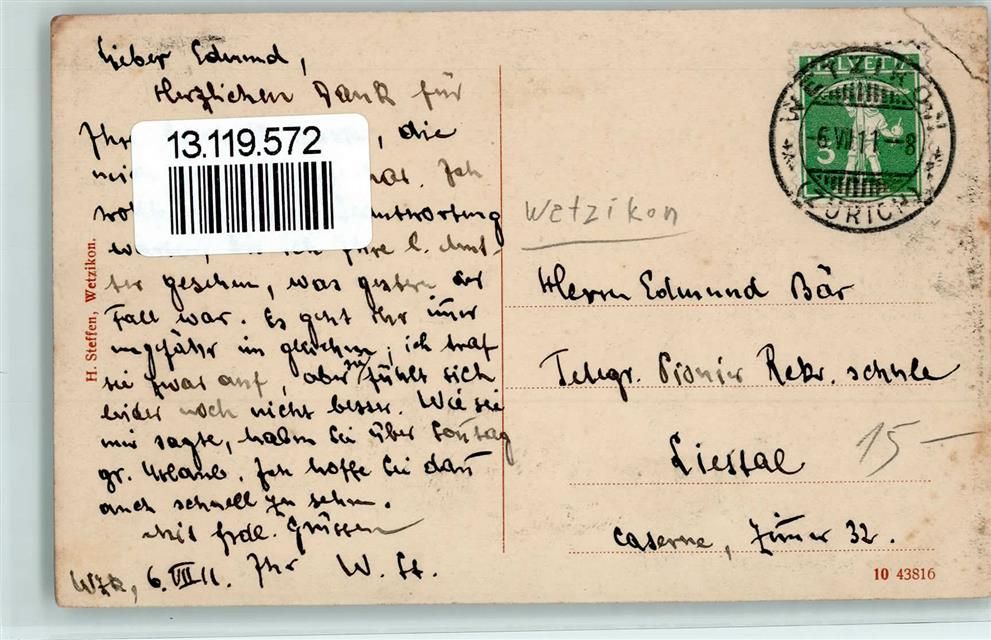 Lieber Edmund,
Herzlichen Dank für
Ihre die
mich war. Ich
antwortung
Ihre l. Mut-
ter gesehen, was gestern der
Fall war. Es geht ihr imer
ungefähr im gleichen; ich traf
sie zwar auf, aber sie fühlt sich
leider noch nicht besser. Wie sie
mir sagte, haben Sie über Sontag
gr. Urlaub. Ich hoffe Sie dan
auch schnell zu sehen.
Mit frdl. Grüssen
Wzk, 6.VII 11. Ihr W. St.
13.119.572
H. Steffen, Wetzikon.
HELVETIA
5
WETZIKON
-6.VII.11-8
(ZÜRICH)
Wetzikon
Herrn Edmund Bär
Telegr. Pionier Rekr. schule
Liestal
15-
Caserne, Zimer 32.
10 43816